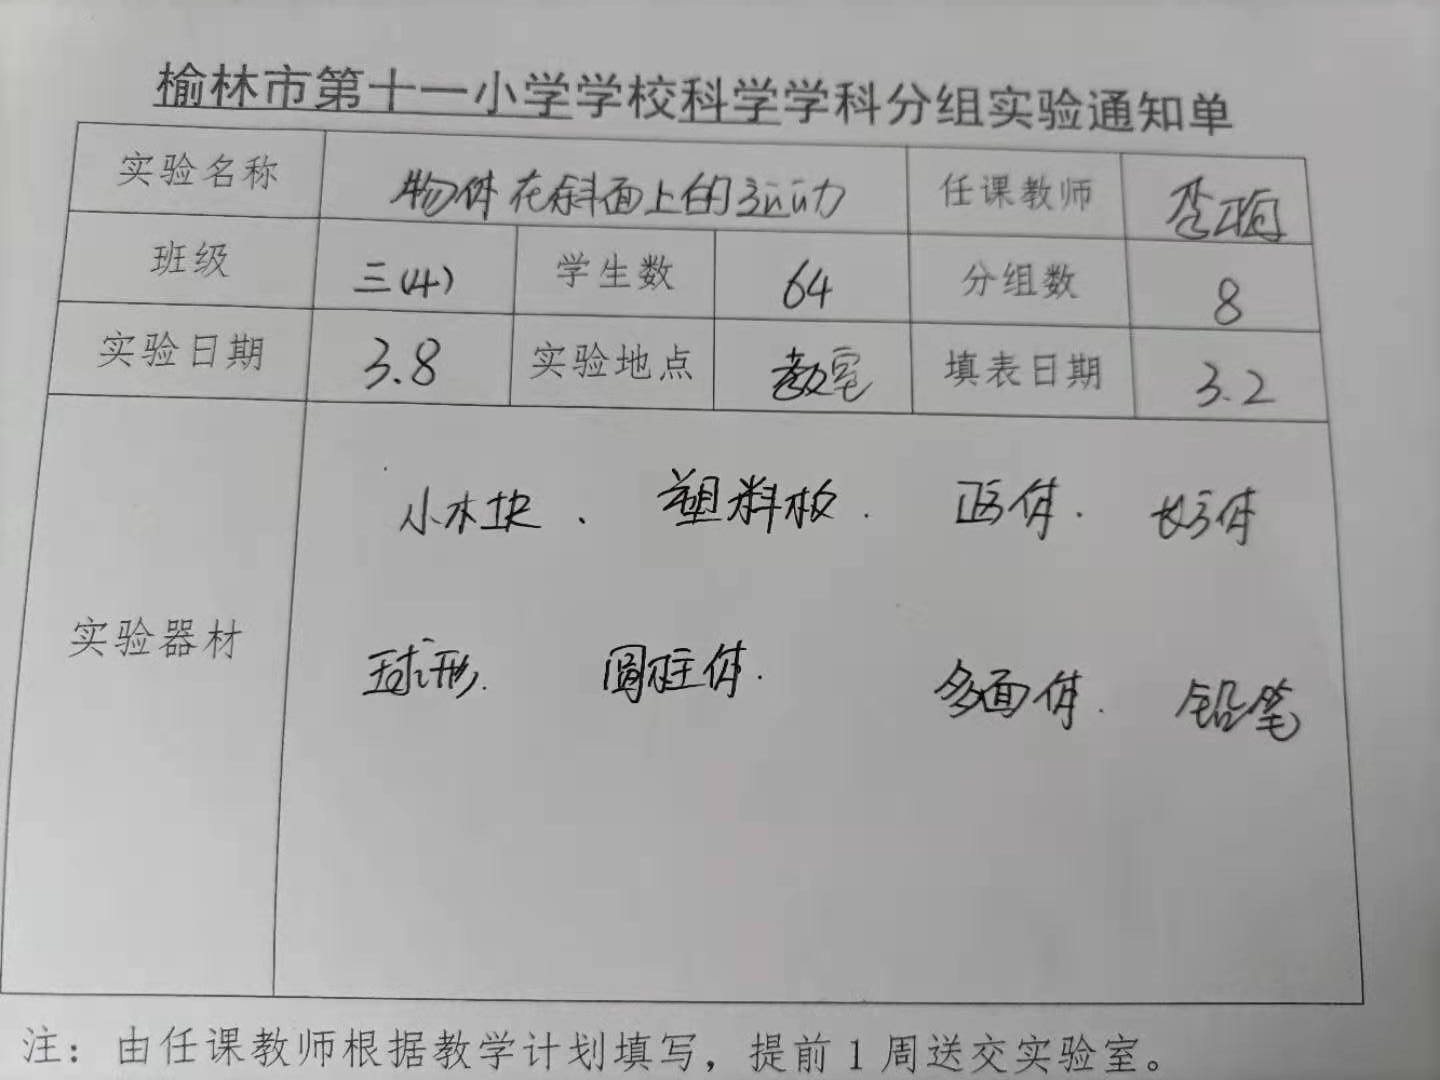 榆林市第十一小学学校科学学科分组实验通知单
实验名称 物体在斜面上的运动 任课教师 李
班级 三(4) 学生数 64 分组数 8
实验日期 3.8 实验地点 教室 填表日期 3.2
小木块、 塑料板. 正方体. 长方体
实验器材
球形. 圆柱体. 多面体. 铅笔
注：由任课教师根据教学计划填写，提前1周送交实验室。